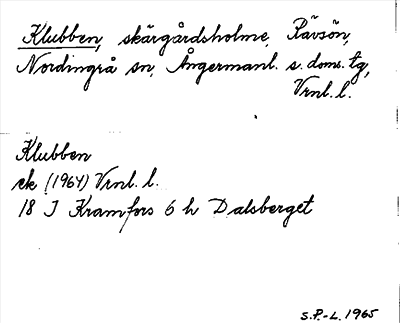 Klubben, skärgårdsholme, Rävsön,
Nordingrå sn, Ångermanl. s. doms. tg,
Vrnl. l.
Klubben
ek (1964) Vrnl. l.
18 I Kramfors 6 h Dalsberget
S.P.-L. 1965